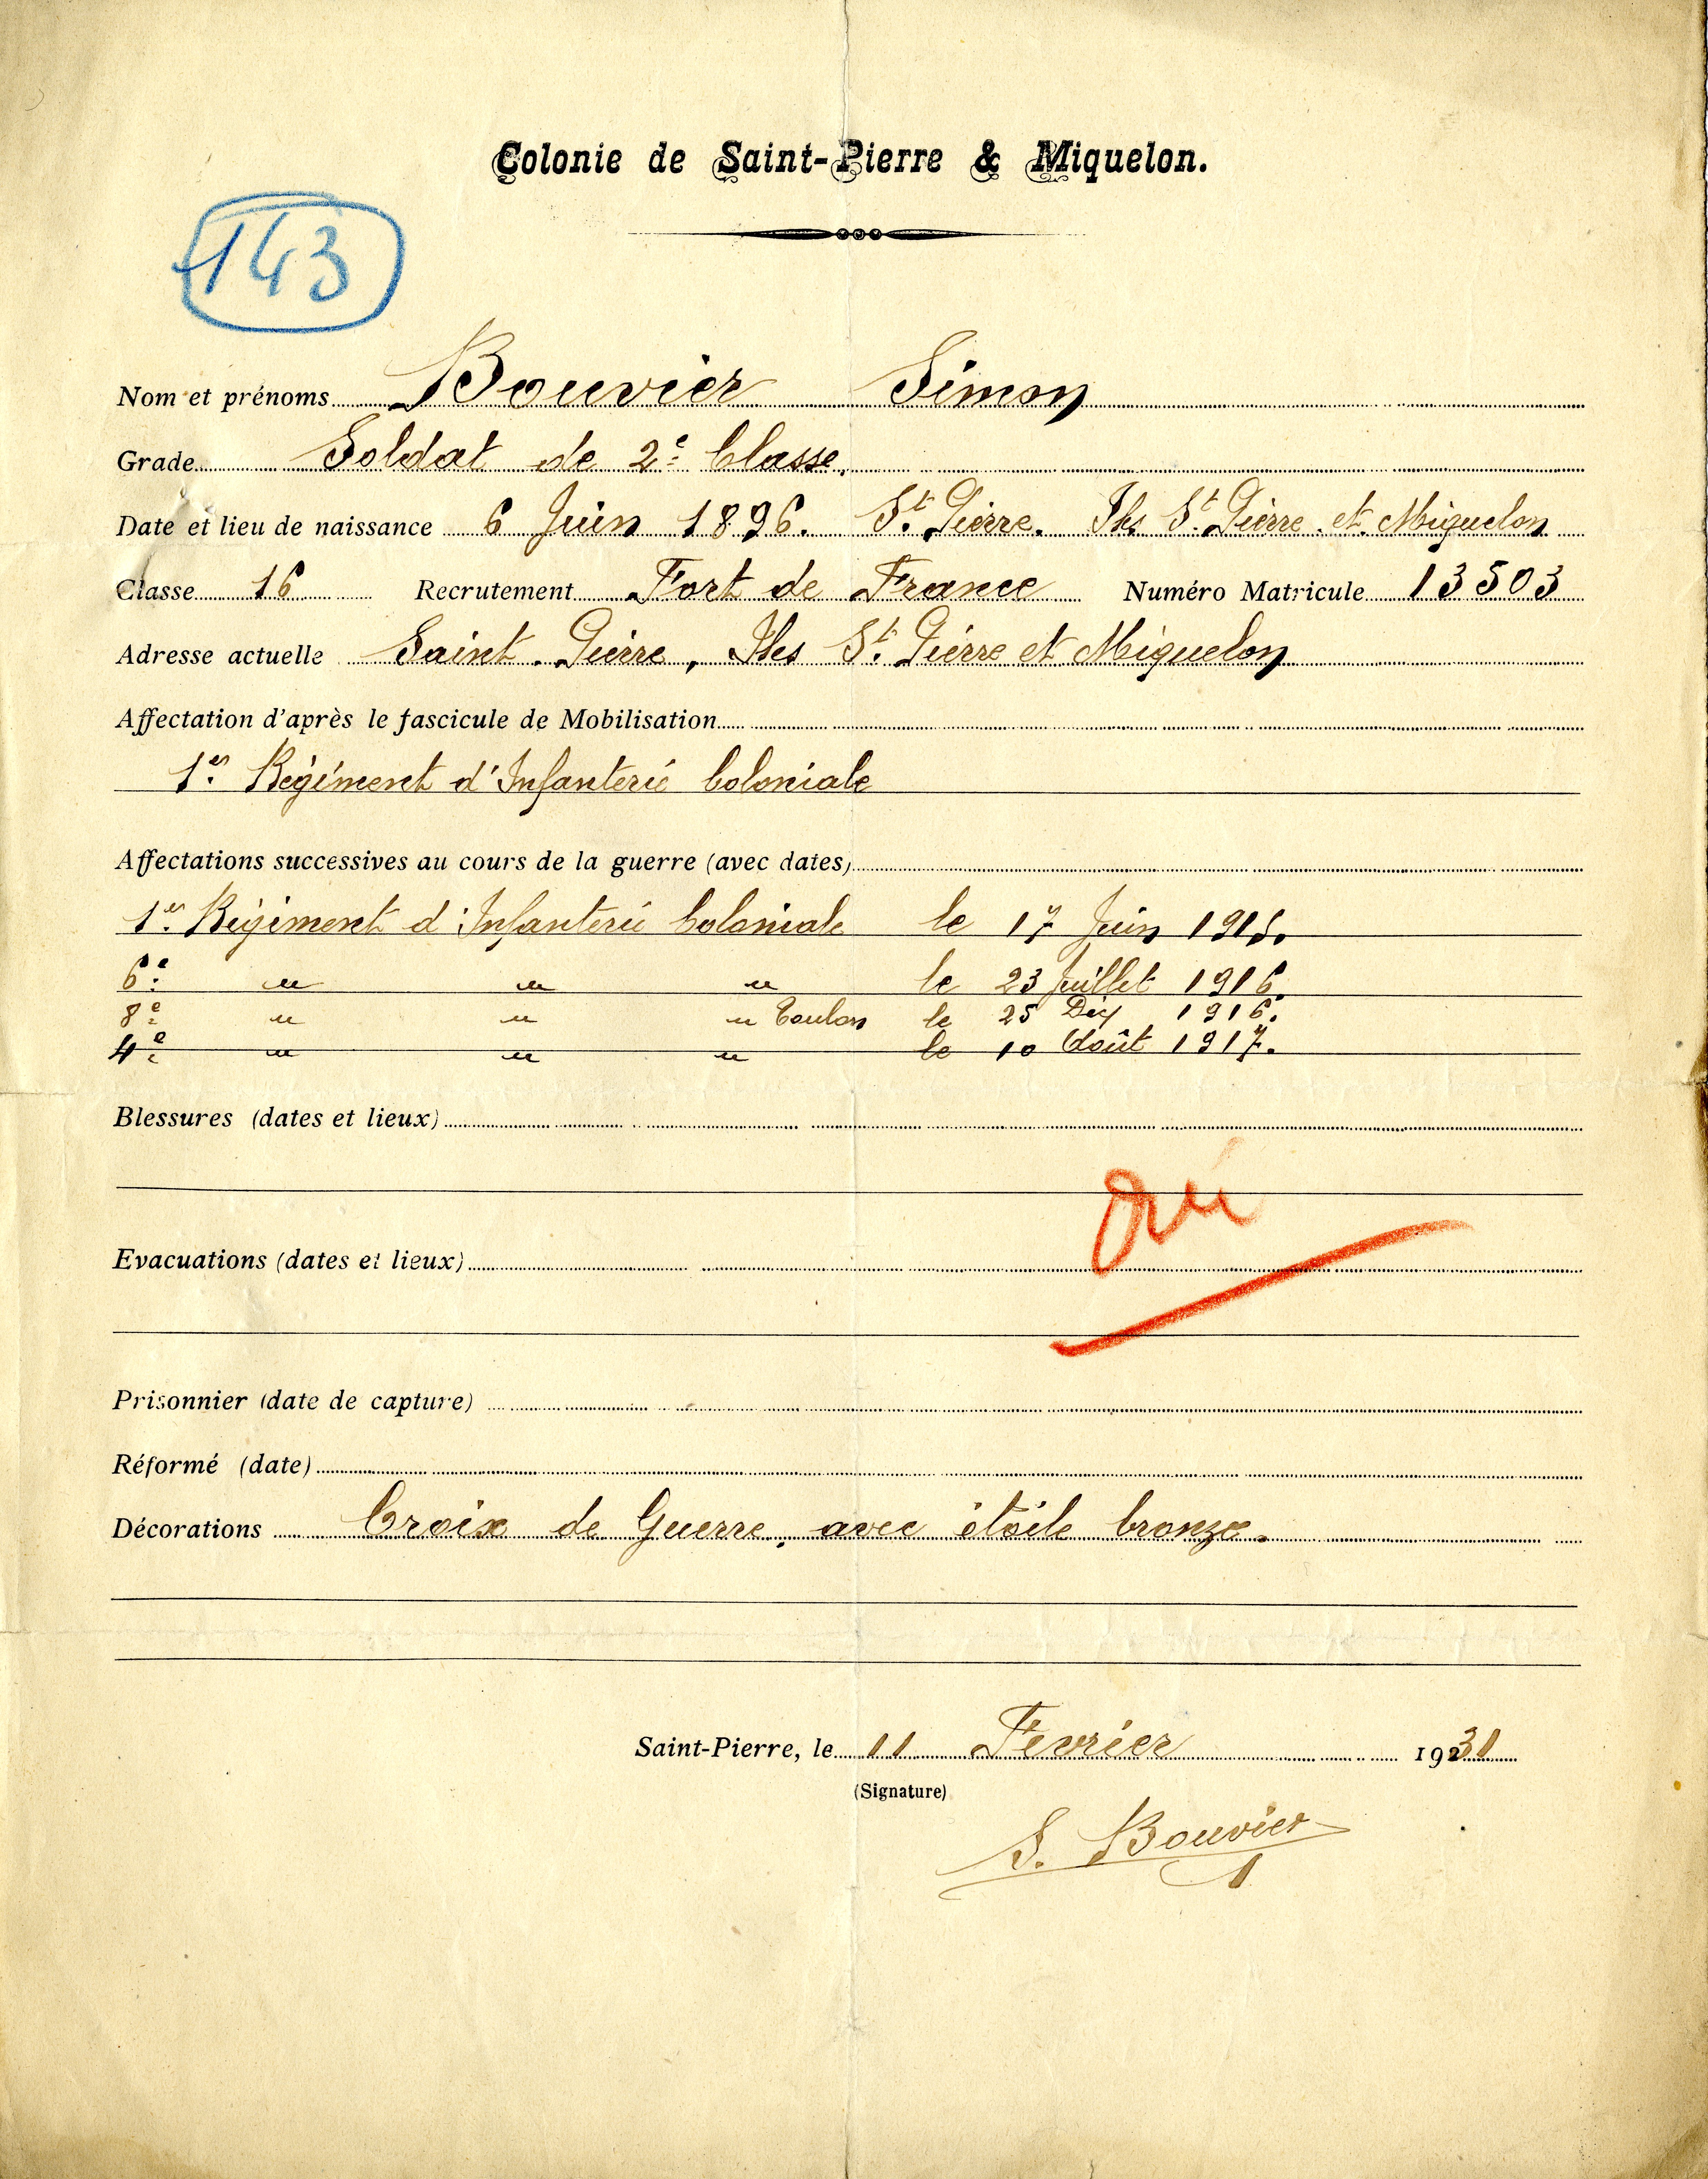 Colonie de Saint-Pierre & Miquelon.
143
Nom et prénoms Bouvier Simon
Grade Soldat de 2e Classe.
Date et lieu de naissance 6 Juin 1896. St. Pierre. Iles St. Pierre et Miquelon
Classe 16 Recrutement Fort de France Numéro Matricule 13503
Adresse actuelle Saint-Pierre, Iles St. Pierre et Miquelon
Affectation d'après le fascicule de Mobilisation
1er Régiment d'Infanterie Coloniale
Affectations successives au cours de la guerre (avec dates)
1er Régiment d'Infanterie Coloniale le 17 Juin 1915.
6e " " " le 23 Juillet 1916.
8e " " " Toulon le 25 Déc 1916.
4e " " " le 10 Août 1917.
Blessures (dates et lieux)
oui
Evacuations (dates et lieux)
Prisonnier (date de capture)
Réformé (date)
Décorations Croix de Guerre, avec étoile bronze.
Saint-Pierre, le 11 Février 1931
(Signature)
S. Bouvier